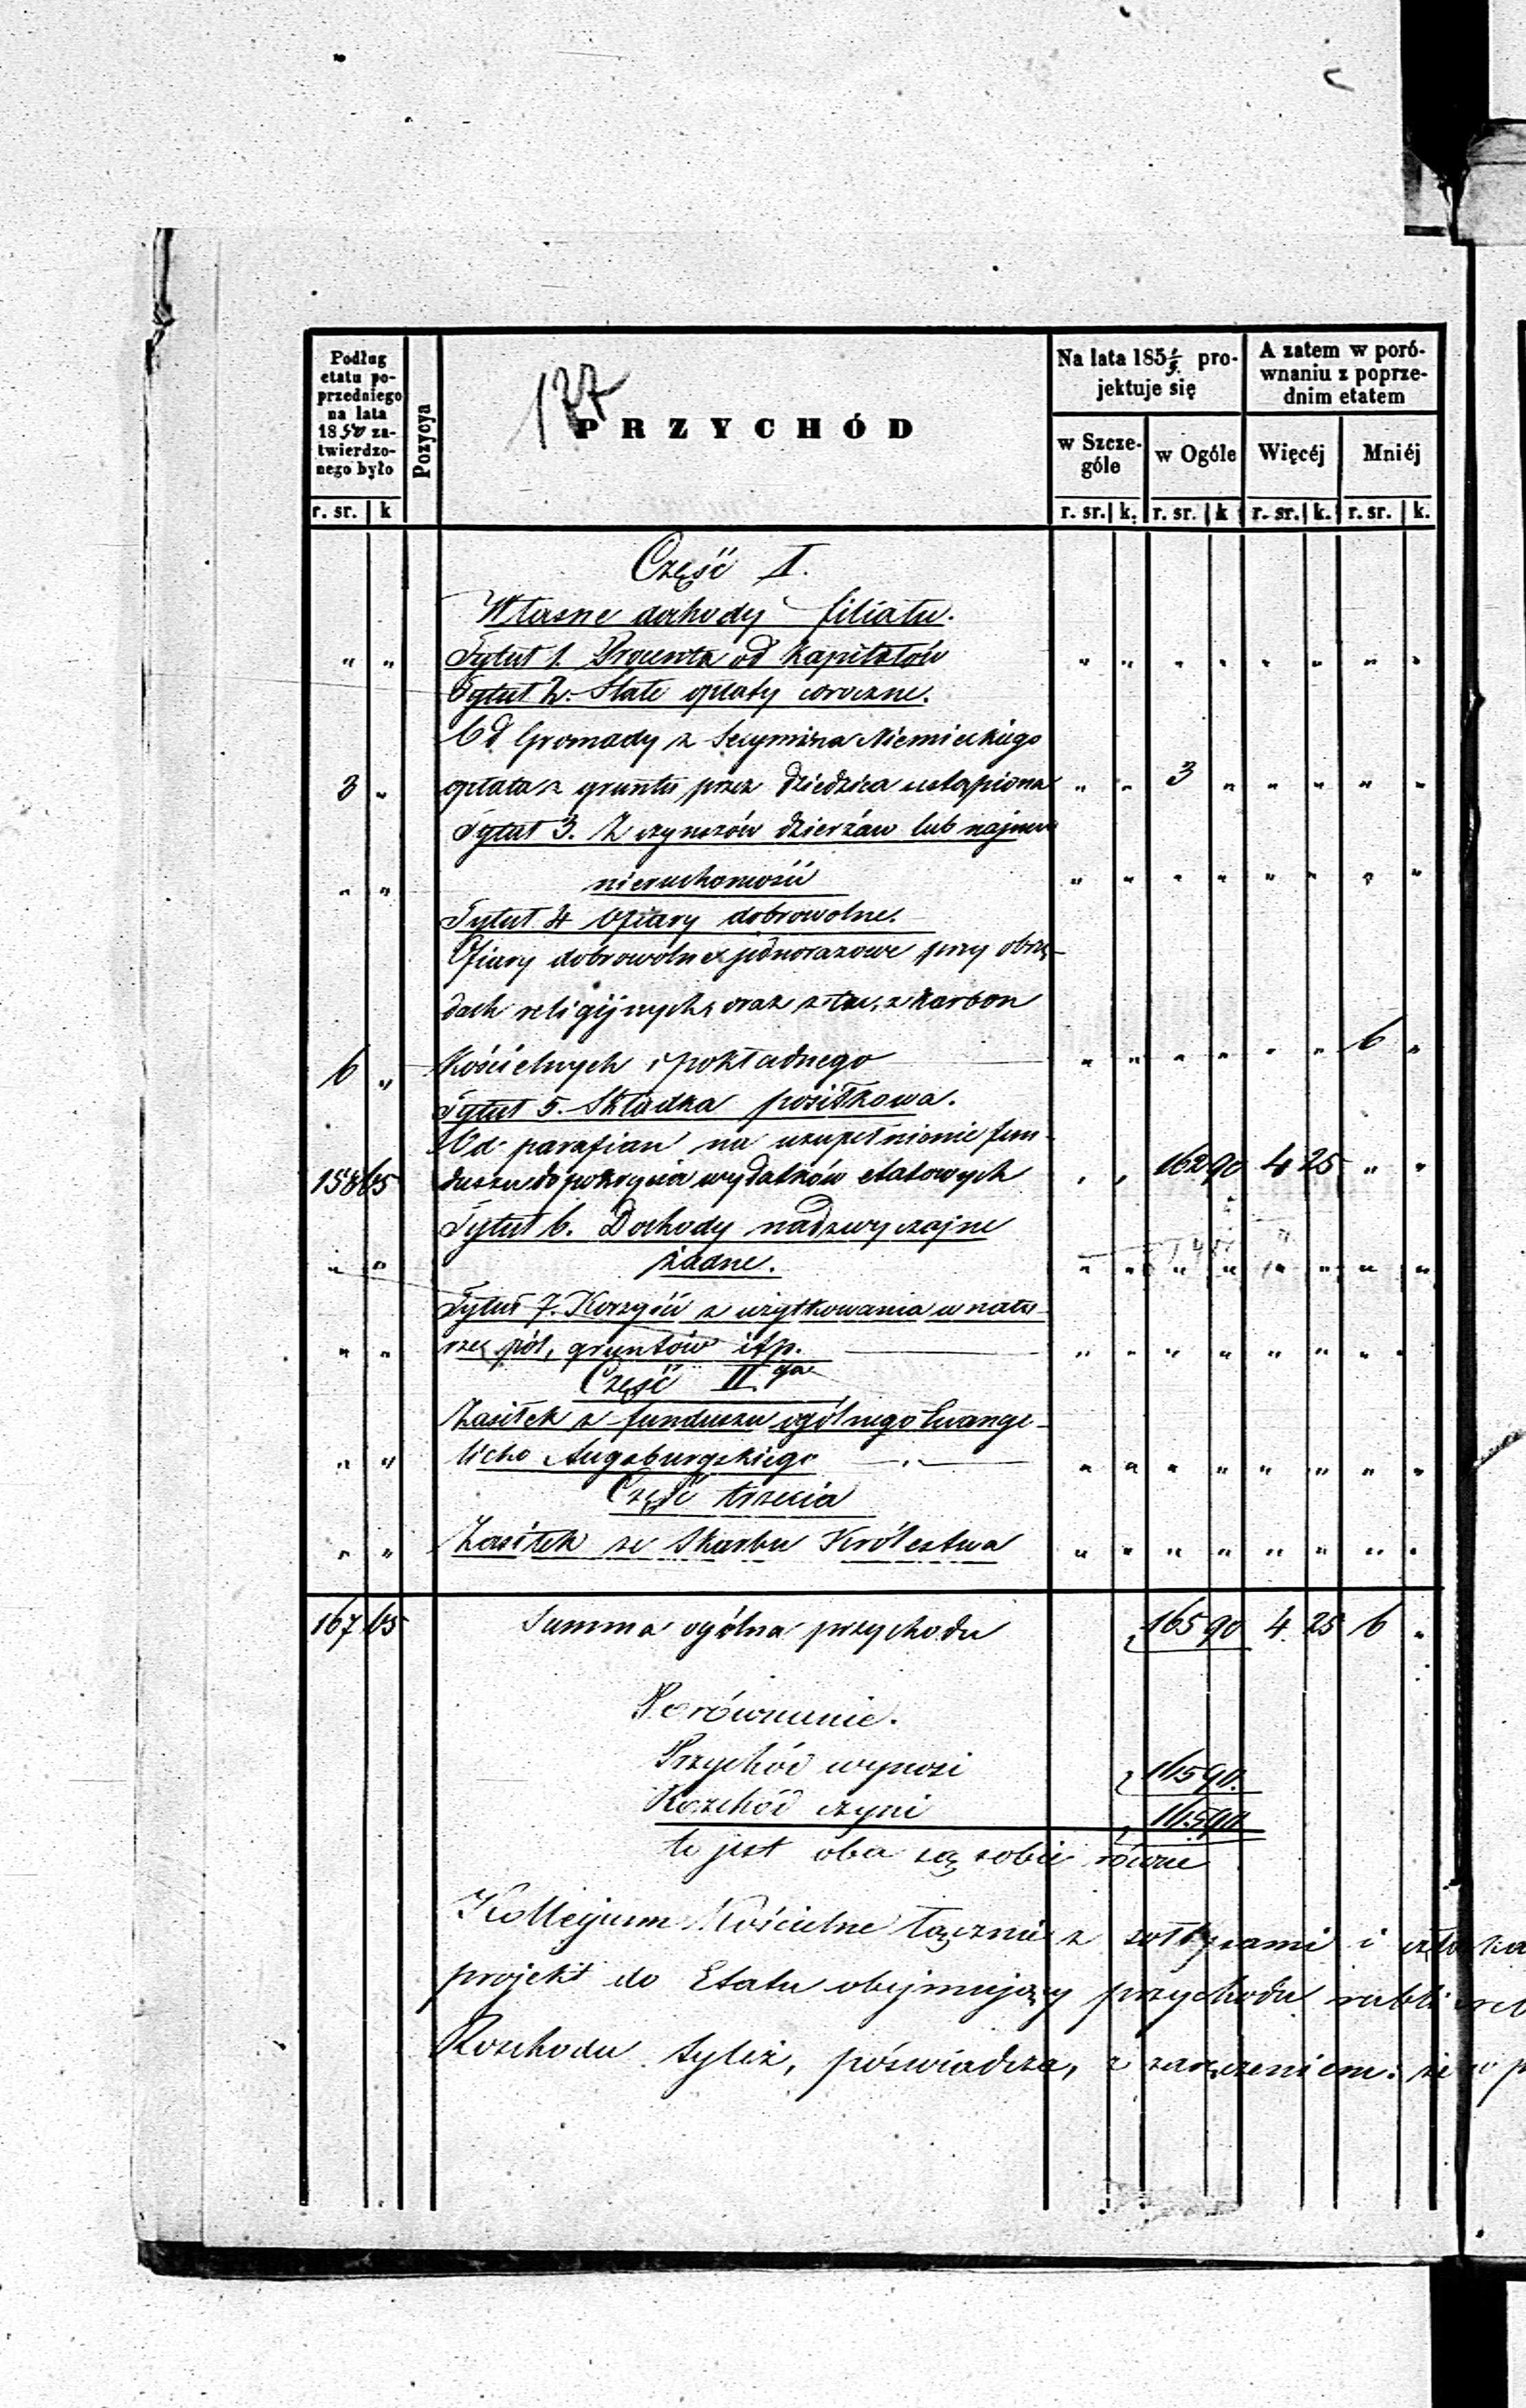 177
Podług etatu poprzedniego na lata 18 zatwierdzonego było
Pozycya
PRZYCHÓD
Na lata 185 projektuje się
A zatem w porównaniu z poprzednim etatem
w Szczególe
w Ogóle
Więcéj
Mniéj
r. sr. k r. sr. k. r. sr. k r. sr. k. r. sr. k.
Część I.
Własne dochody filiału.
" " Tytuł 1. Procenta od kapitałów " " " " " " " "
Tytuł 2. Stałe opłaty coroczne.
Od Gromady z Secymina Niemieckiego
3 " opłata z gruntu przez dziedzica ustąpiona " " 3 " " " " "
Tytuł 3. Z czynszów dzierżaw lub najmu
" " nieruchomości " " " " " " " "
Tytuł 4 Ofiary dobrowolne.
Ofiary dobrowolne jednorazowe przy obrzę-
dach religijnych, oraz z karbon
6 " Kościelnych i pokładnego " " " " " " 6 "
Tytuł 5. Składka posiłkowa.
Od parafian na uzupełnienie fun-
158 65 duszu do pokrycia wydatków etatowych " " 162 90 4 25 " "
Tytuł 6. Dochody nadzwyczajne
" " żadne. " " " " " " " "
Tytuł 7. Korzyści z użytkowania w natu-
" " rze pól, gruntów itp. " " " " " " " "
Część II ga
Zasiłek z funduszu ogólnego Ewange-
" " licko Augsburgskiego " " " " " " " "
Część trzecia
" " Zasiłek ze Skarbu Królestwa " " " " " " " "
167 65 Summa ogólna przychodu 165 90 4 25 6 "
Porównanie.
Przychód wynosi 165 90.
Rozchód czyni 165 90
to jest oba są sobie równe
Kollegium Kościelne łącznie z sołtysami i
projekt do Etatu obejmujący przychodu rubli
Rozchodu tyleż, poświadcza, z zaręczeniem. że